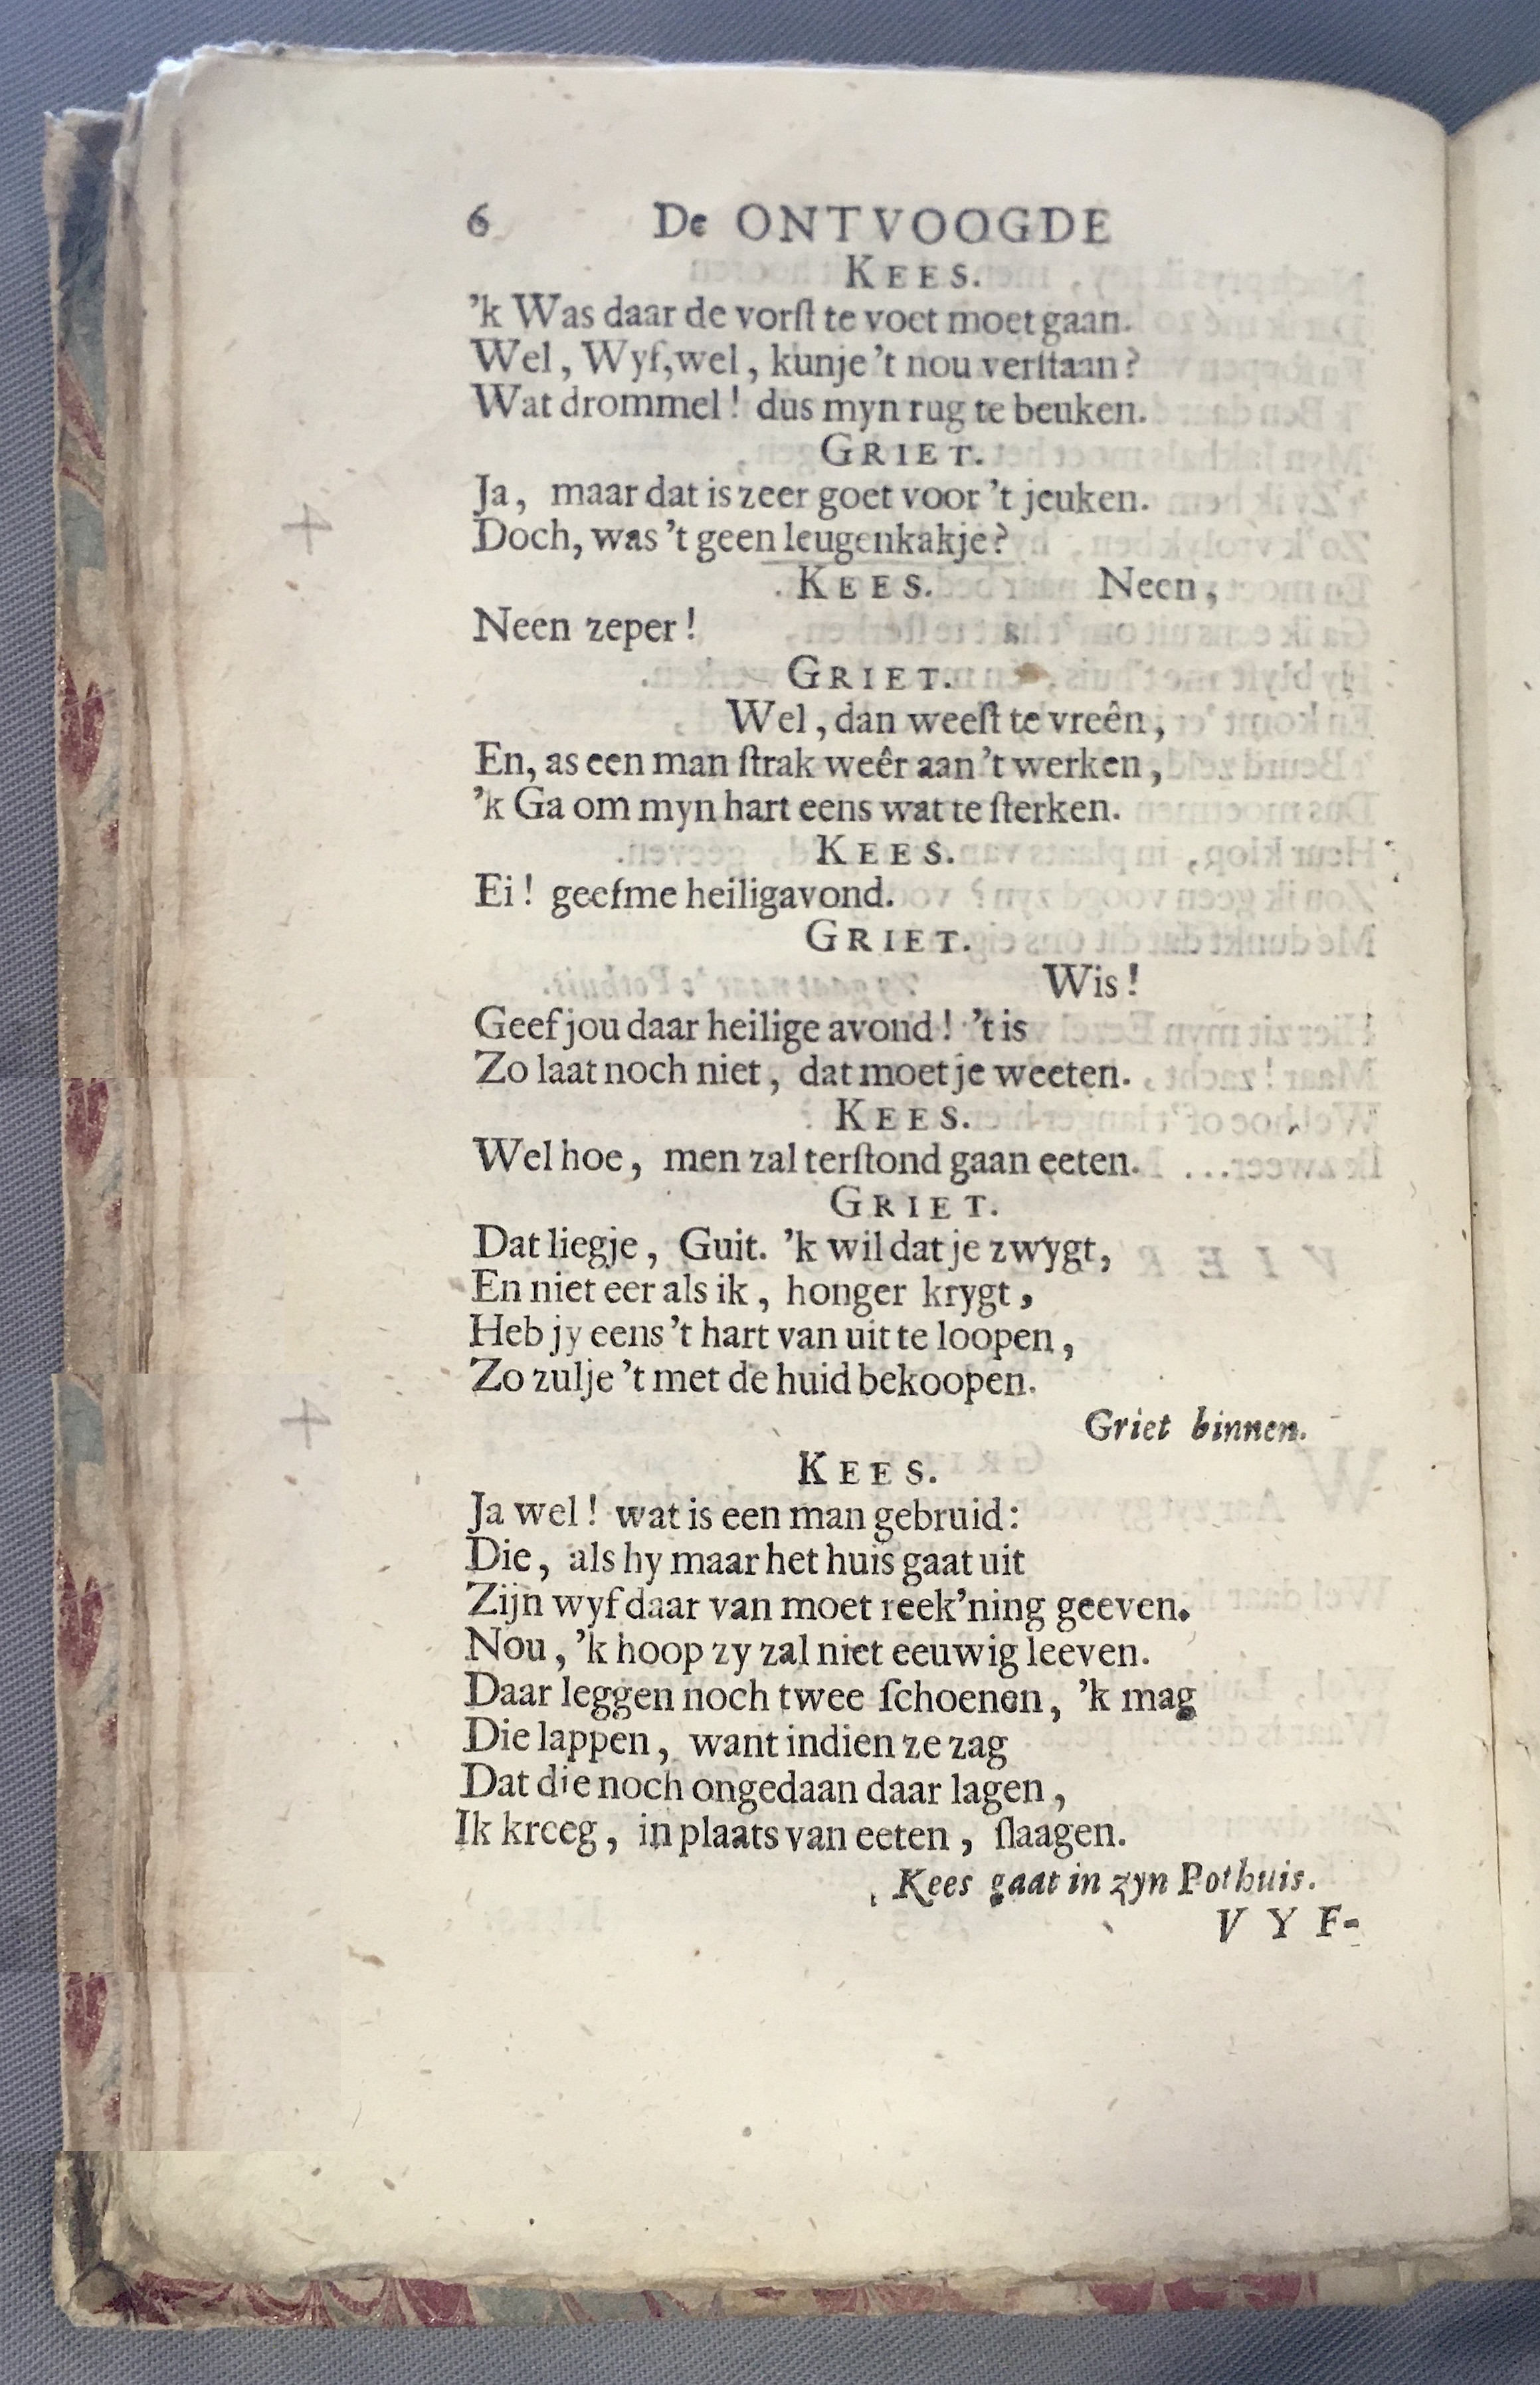 6 De ONTVOOGDE
KEES.
'k Was daar de vorſt te voet moet gaan.
Wel, Wyf, wel, kunje 't nou verſtaan?
Wat drommel! dus myn rug te beuken.
GRIET.
Ja, maar dat is zeer goet voor 't jeuken.
Doch, was 't geen leugenkakje?
KEES. Neen,
Neen zeper!
GRIET.
Wel, dan weeſt te vreên,
En, as een man ſtrak weêr aan 't werken,
'k Ga om myn hart eens wat te ſterken.
KEES.
Ei! geefme heiligavond.
GRIET.
Wis!
Geef jou daar heilige avond! 't is
Zo laat noch niet, dat moet je weeten.
KEES.
Wel hoe, men zal terſtond gaan eeten.
GRIET.
Dat liegje, Guit. 'k wil dat je zwygt,
En niet eer als ik, honger krygt,
Heb jy eens 't hart van uit te loopen,
Zo zulje 't met de huid bekoopen.
Griet binnen.
KEES.
Ja wel! wat is een man gebruid:
Die, als hy maar het huis gaat uit
Zijn wyf daar van moet reek'ning geeven.
Nou, 'k hoop zy zal niet eeuwig leeven.
Daar leggen noch twee ſchoenen, 'k mag
Die lappen, want indien ze zag
Dat die noch ongedaan daar lagen,
Ik kreeg, in plaats van eeten, ſlaagen.
Kees gaat in zyn Pothuis.
VYF-